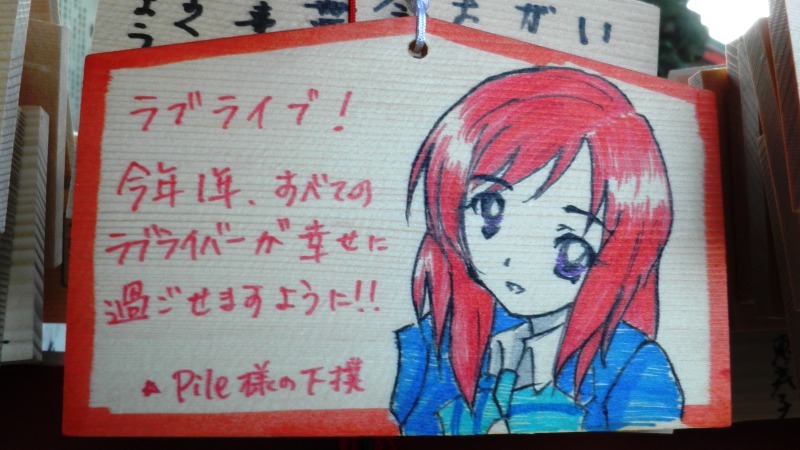 ラブライブ!
今年1年、すべての
ラブライバーが幸せに
過ごせますように!!
Pile様の下撲